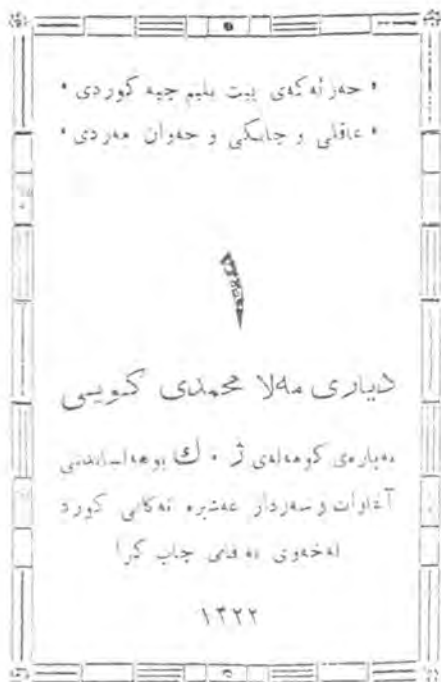 • حەزئەکەی پیت بلیم چیە کوردی •
• عاقلی و چابکی و جەوان مەردی •
دیاری مەلا محمدی کویی
بەپارەی کومەلەی ژ . ك بوهەلساندنی
آغاوات و سەردار عەشیرە تەکانی کورد
لەخەوی غەفلەت چاپ کرا
١٣٢٢